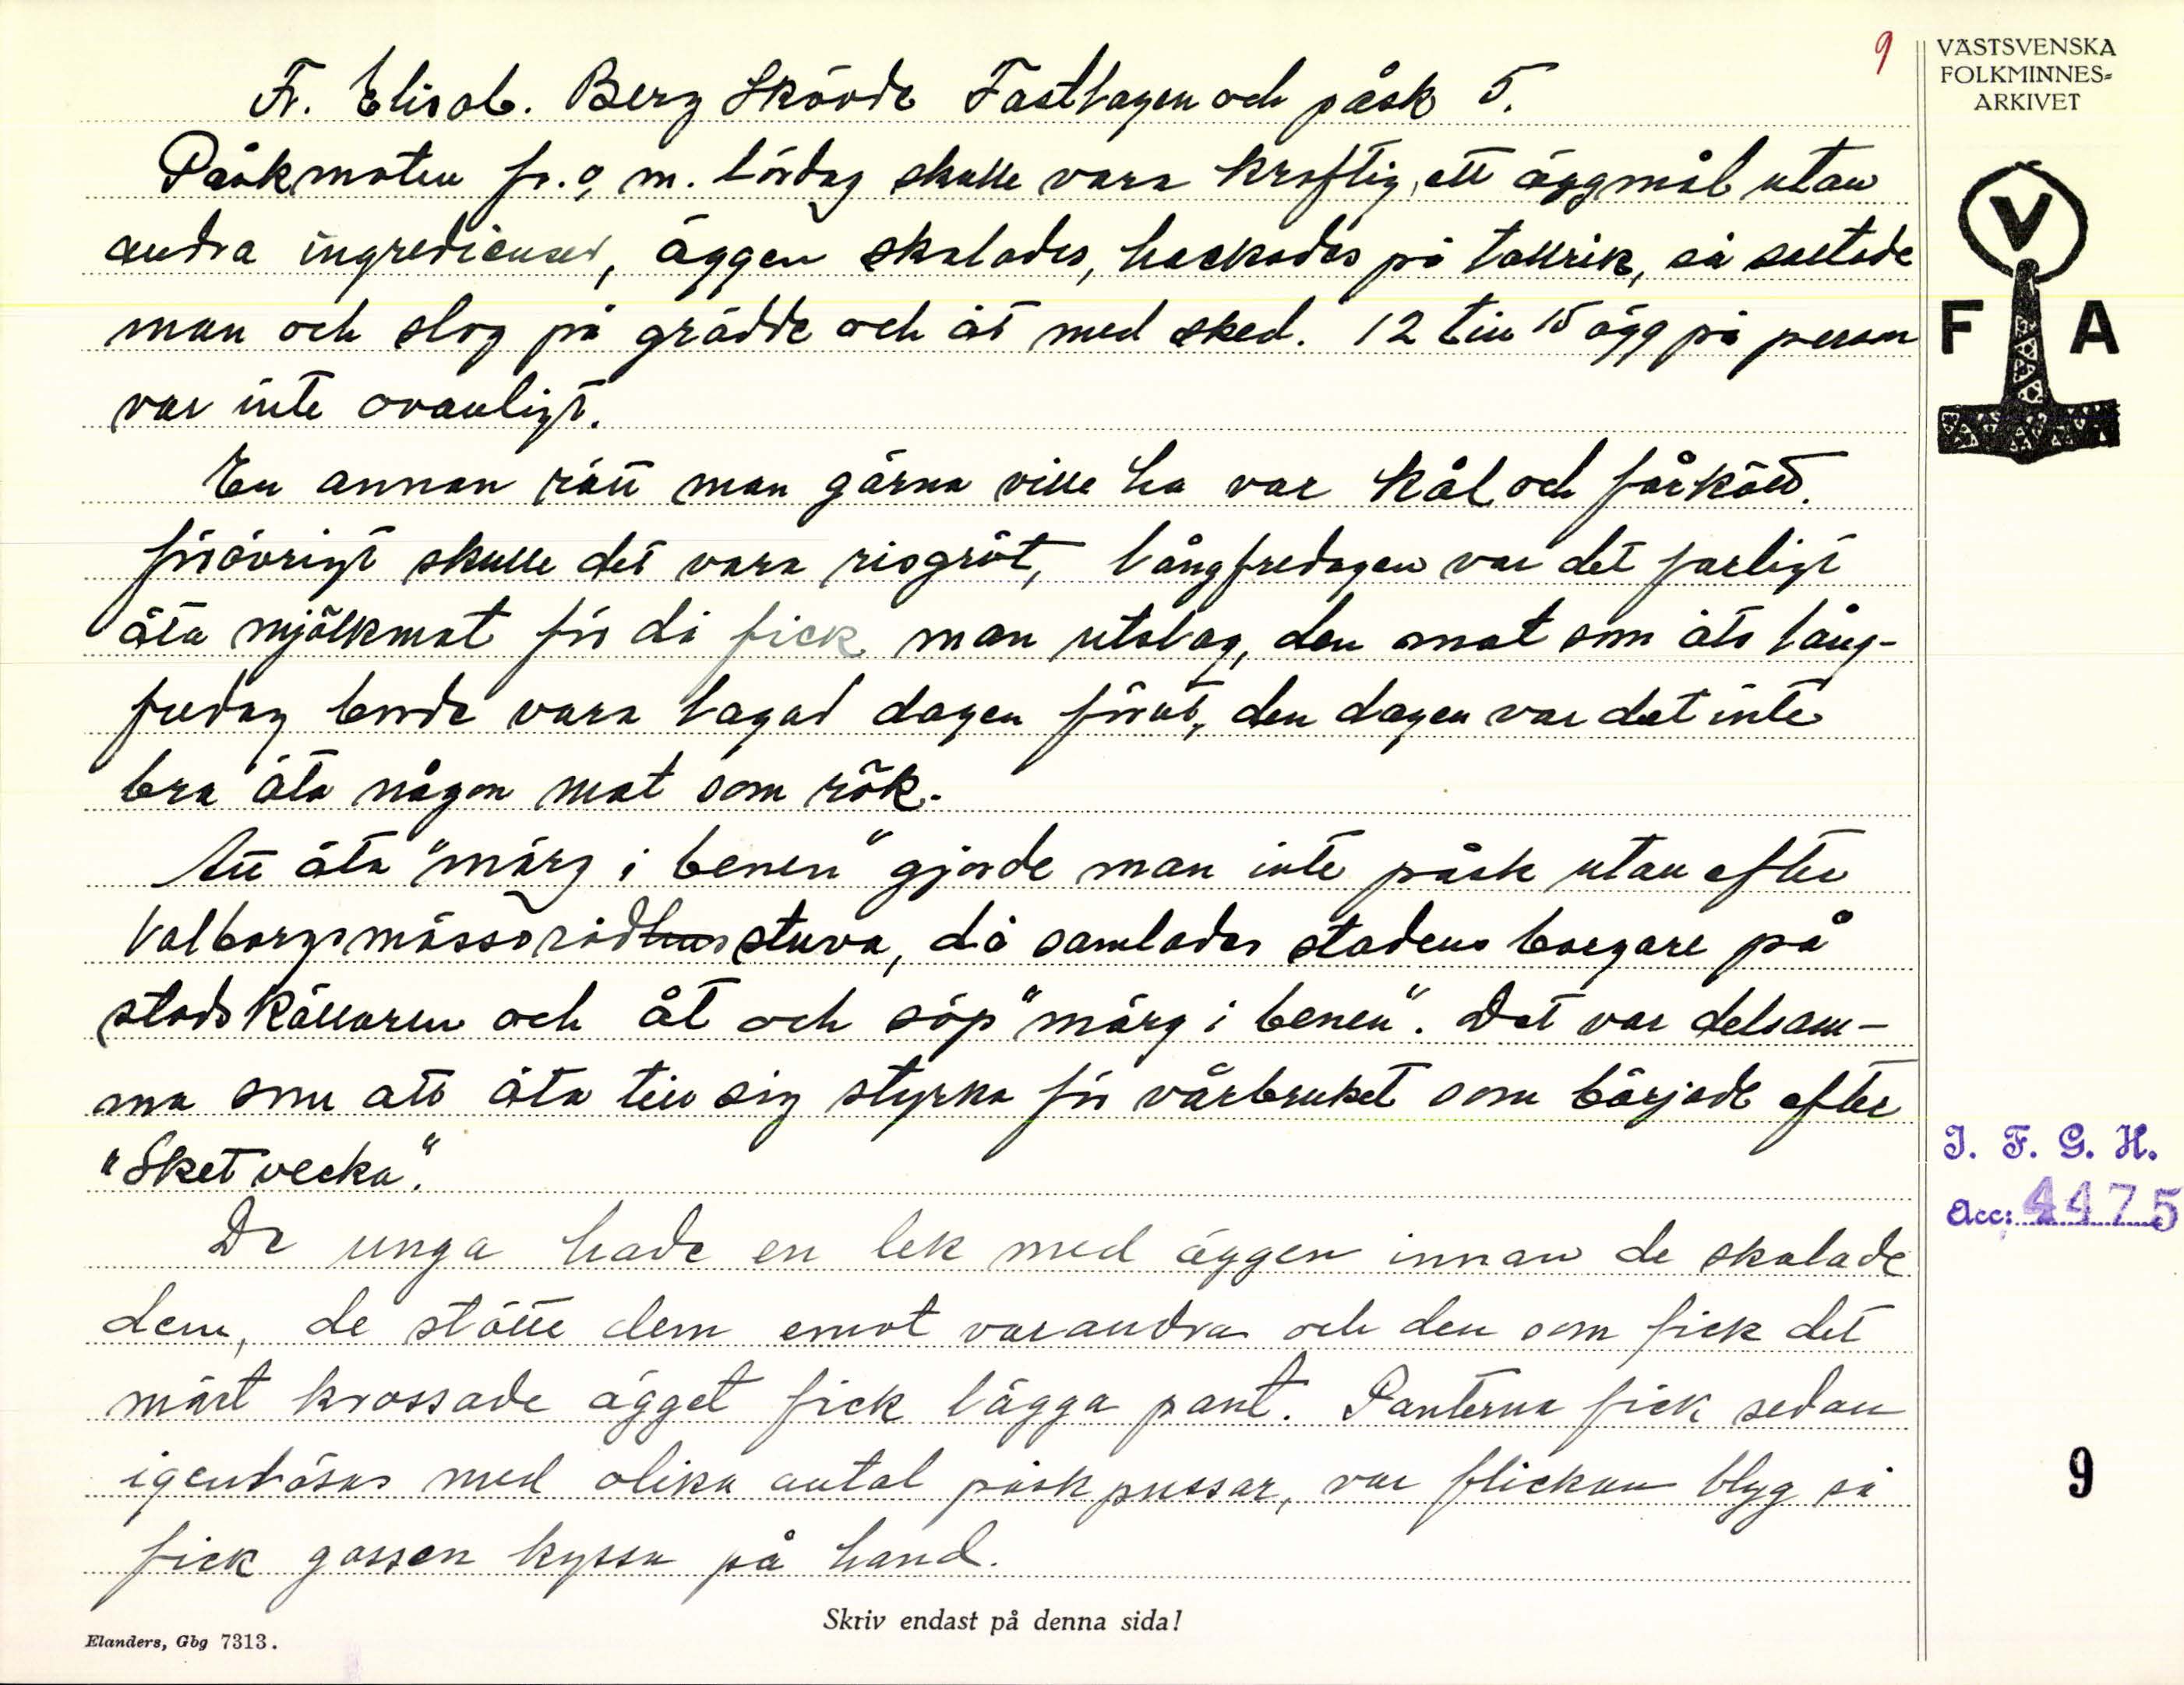 Fr. Elisab. Berg Skövde Fastlagen och påsk 5.
9
VÄSTSVENSKA
FOLKMINNES=
ARKIVET
Påskmaten fr.o.m. lördag skulle vara kraftig, ett äggmål utan
andra ingredienser, äggen skalades, hackades på tallrik, så saltade
man och slog på grädde och åt med sked. 12 till 15 ägg på person
var inte ovanligt.
V
F A
En annan rätt man gärna ville ha var kål och fårkött.
förövrigt skulle det vara risgröt, långfredagen var det farligt
äta mjölkmat för då fick man utslag, den mat som åts lång-
fredag borde vara lagad dagen förut, den dagen var det inte
bra äta någon mat som rök.
Att äta "märg i benen" gjorde man inte påsk utan efter
Valborgsmässorådhusstuva, då samlades stadens borgare på
stadskällaren och åt och söp "märg i benen". Det var detsam-
ma som att äta till sig styrka för vårbruket som började efter
"Sket vecka".
I. F. G. H.
Acc: 4475
De unga hade en lek med äggen innan de skalade
dem, de stötte dem emot varandra och den som fick det
mäst krossade ägget fick lägga pant. Panterna fick sedan
igenlösas med olika antal påskpussar, var flickan blyg så
fick gossen kyssa på hand.
9
Skriv endast på denna sida!
Elanders, Gbg 7313.